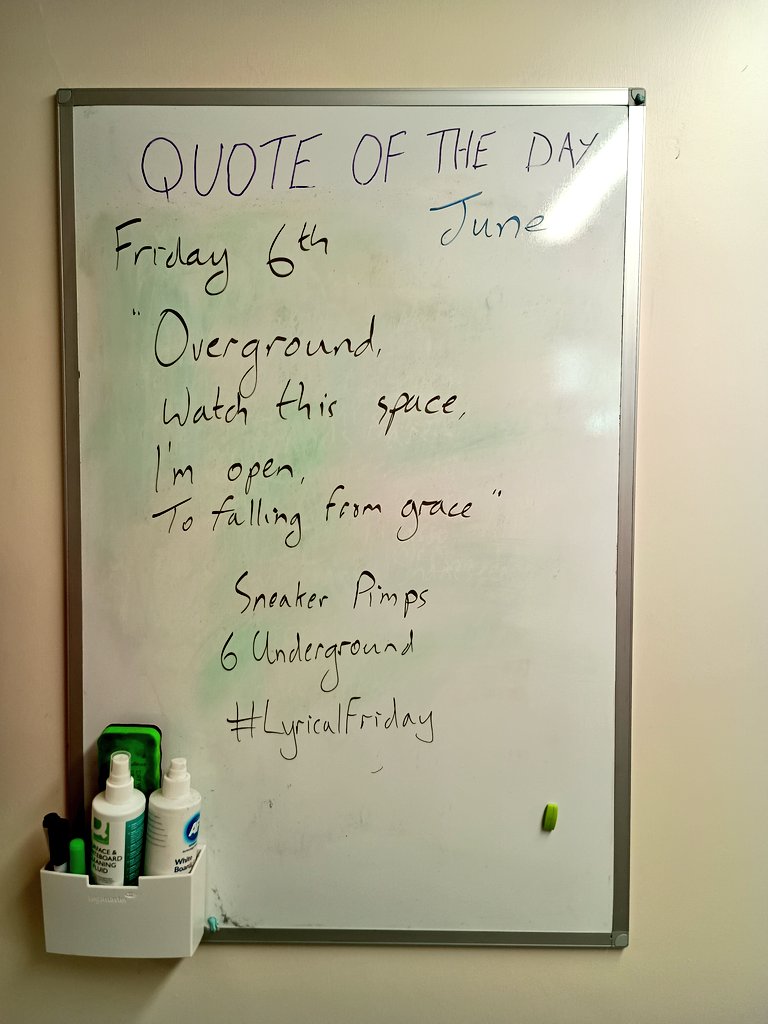 QUOTE OF THE DAY
June
Friday 6th
"Overground,
Watch this space,
I'm open,
To falling from grace"
Sneaker Pimps
6 Underground
#LyricalFriday
SURFACE &
WHITEBOARD
CLEANING
FLUID
White
Board